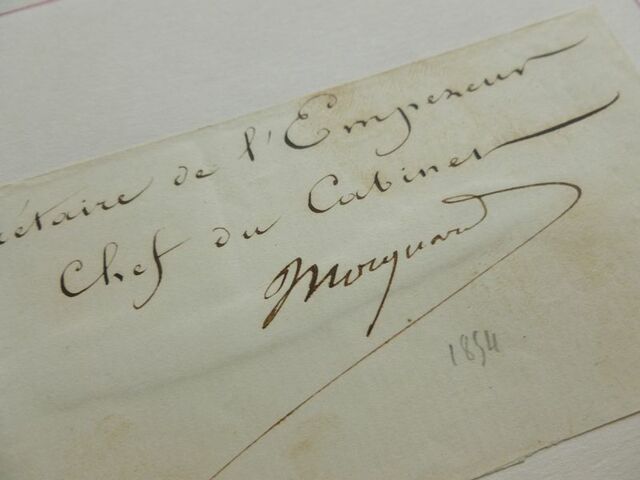 crétaire de l'Empereur
Chef du Cabinet
Mocquard
1854